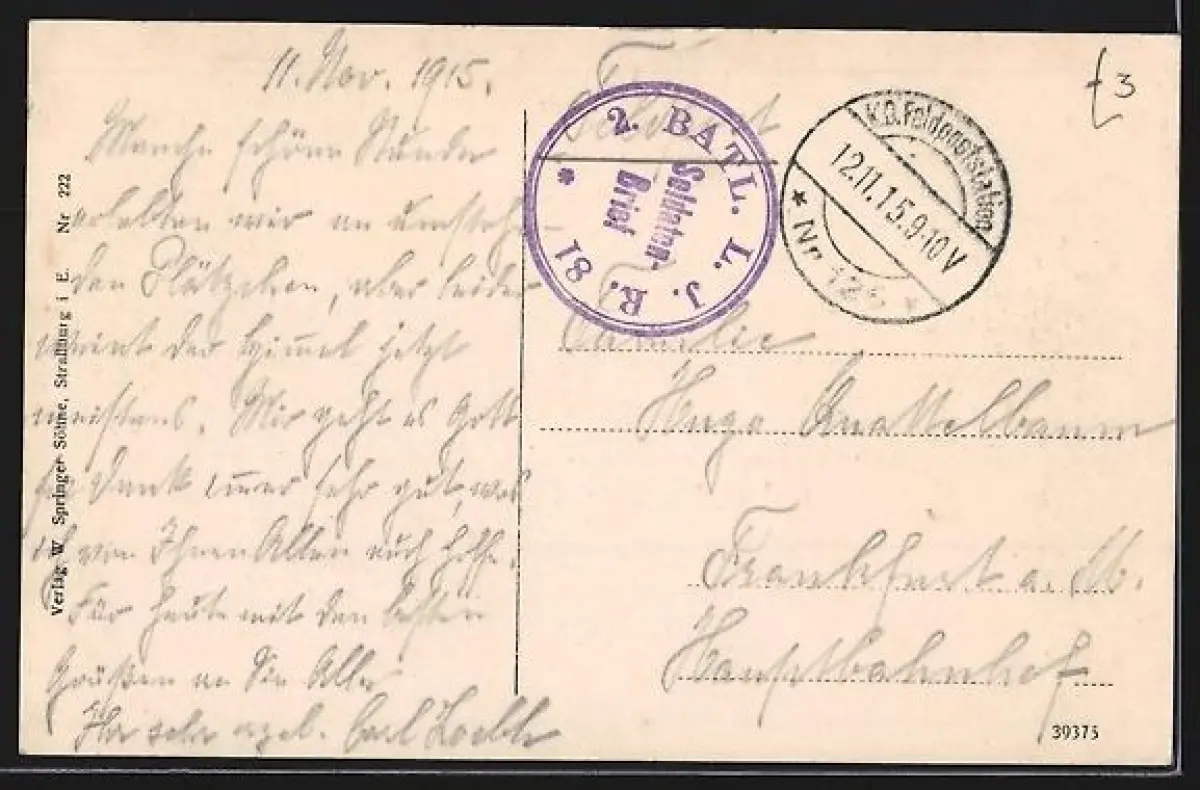 11. Nov. 1915.
Manche schöne Stunde
erlebten wir an umstehen-
den Plätzchen, aber leider
weint der Himmel jetzt
meistens. Mir geht es Gott
sei Dank immer sehr gut, was
ich von Ihnen Allen auch hoffe.
Für heute mit den besten
Grüßen an Sie Alle
Ihr sehr ergeb. Carl
Verlag W. Springer Söhne, Straßburg i. E. Nr 222
Feldpost
2. BATL. L. J. R. 81
Soldaten-
Brief
K.D. Feldpoststation
12.11.15.9-10V
Nr
£3
Familie
Hugo Knattelbaum
Frankfurt a. M.
Hauptbahnhof
39375